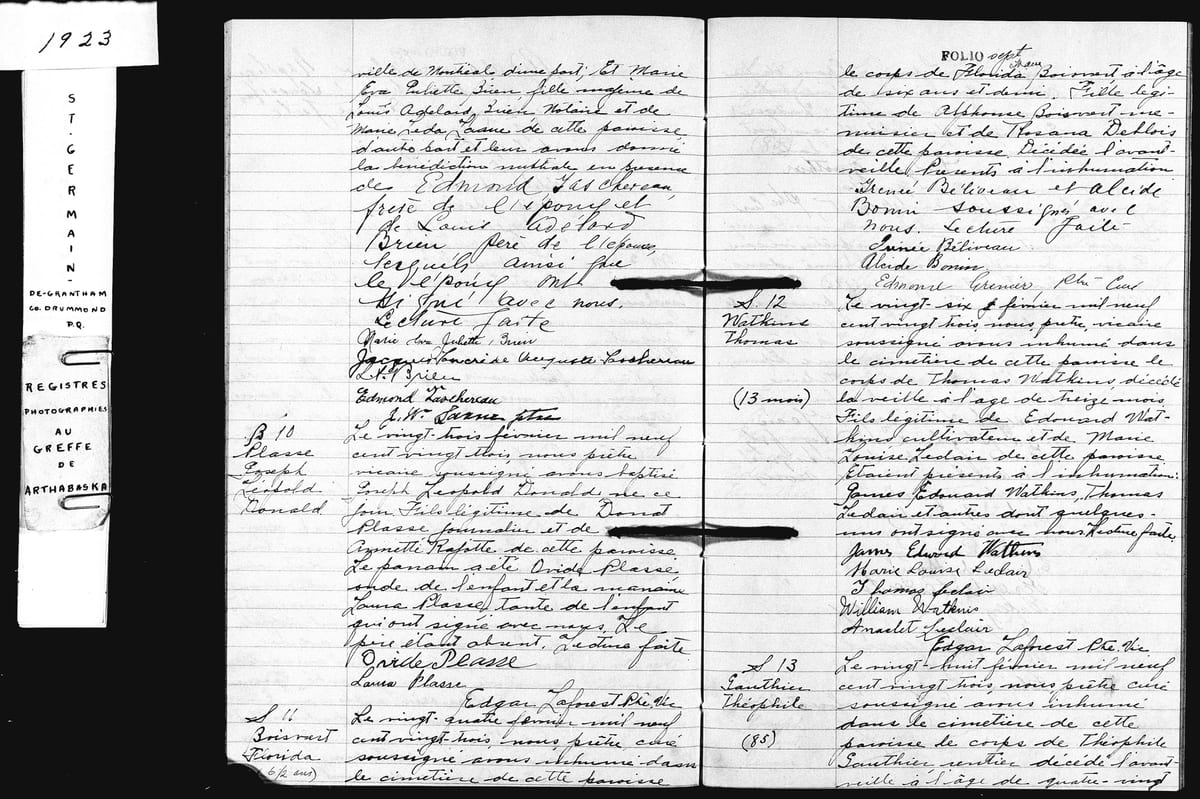 1923
ST. GERMAIN-
DE-GRANTHAM
CO. DRUMMOND
P.Q.
REGISTRES
PHOTOGRAPHIES
AU
GREFFE
DE
ARTHABASKA
ville de Montréal d'une part; Et Marie
Eva Juliette Brien fille majeure de
Louis Adélard Brien, Notaire et de
Marie Léda de cette paroisse
d'autre part et leur avons donné
la bénédiction nuptiale en présence
de Edmond Taschereau,
frère de l'époux et
de Louis Adélard
Brien père de l'épouse,
lesquels ainsi que
le l'époux ont
signé avec nous.
Lecture faite
Marie Eva Juliette Brien
Jacques Auguste Taschereau
L. A. Brien
Edmond Taschereau
J. Wm ptre
B 10
Plasse
Joseph
Léopold
Donald
Le vingt-trois février mil neuf
cent vingt trois nous prêtre
vicaire soussigné avons baptisé
Joseph Léopold Donald né ce
jour Fils légitime de Donat
Plasse journalier et de
Annette Rajotte de cette paroisse
Le parrain a été Ovide Plasse
oncle de l'enfant et la marraine
Laura Plasse, tante de l'enfant
qui ont signé avec nous. Le
père étant absent. Lecture faite
Ovide Plasse
Laura Plasse
Edgar Laforest Ptre Vic
S 11
Boisvert
Florida
(6 1/2 ans)
Le vingt-quatre février mil neuf
cent vingt-trois, nous, prêtre curé
soussigné avons inhumé dans
le cimetière de cette paroisse
FOLIO sept
le corps de Florida Boisvert à l'âge
de six ans et demi. Fille légi-
time de Alphonse Boisvert me-
nuisier et de Rosana Deblois
de cette paroisse Décédée l'avant-
veille Présents à l'inhumation
Irenée Béliveau et Alcide
Bonin soussignés avec
nous. Lecture faite
Irenée Béliveau
Alcide Bonin
Edmond Grenier, Ptre Curé
S. 12
Watkins
Thomas
(13 mois)
Le vingt-six février mil neuf
cent vingt trois nous, prêtre, vicaire
soussigné avons inhumé dans
le cimetière de cette paroisse le
corps de Thomas Watkins, décédé
la veille à l'âge de treize mois
Fils légitime de Edouard Wat-
kins cultivateur et de Marie
Louise Leclair de cette paroisse
Etaient présents à l'inhumation:
James Edouard Watkins, Thomas
Leclair et autres dont quelques-
uns ont signé avec nous Lecture faite
James Edword Watkins
Marie Louise Leclair
Thomas Leclair
William Watkins
Anaclet Leclair
Edgar Laforest Ptre. Vic
S 13
Gauthier
Théophile
(85)
Le vingt-huit février mil neuf
cent vingt trois nous prêtre curé
soussigné avons inhumé
dans le cimetière de cette
paroisse le corps de Théophile
Gauthier rentier décédé l'avant-
veille à l'âge de quatre-vingt